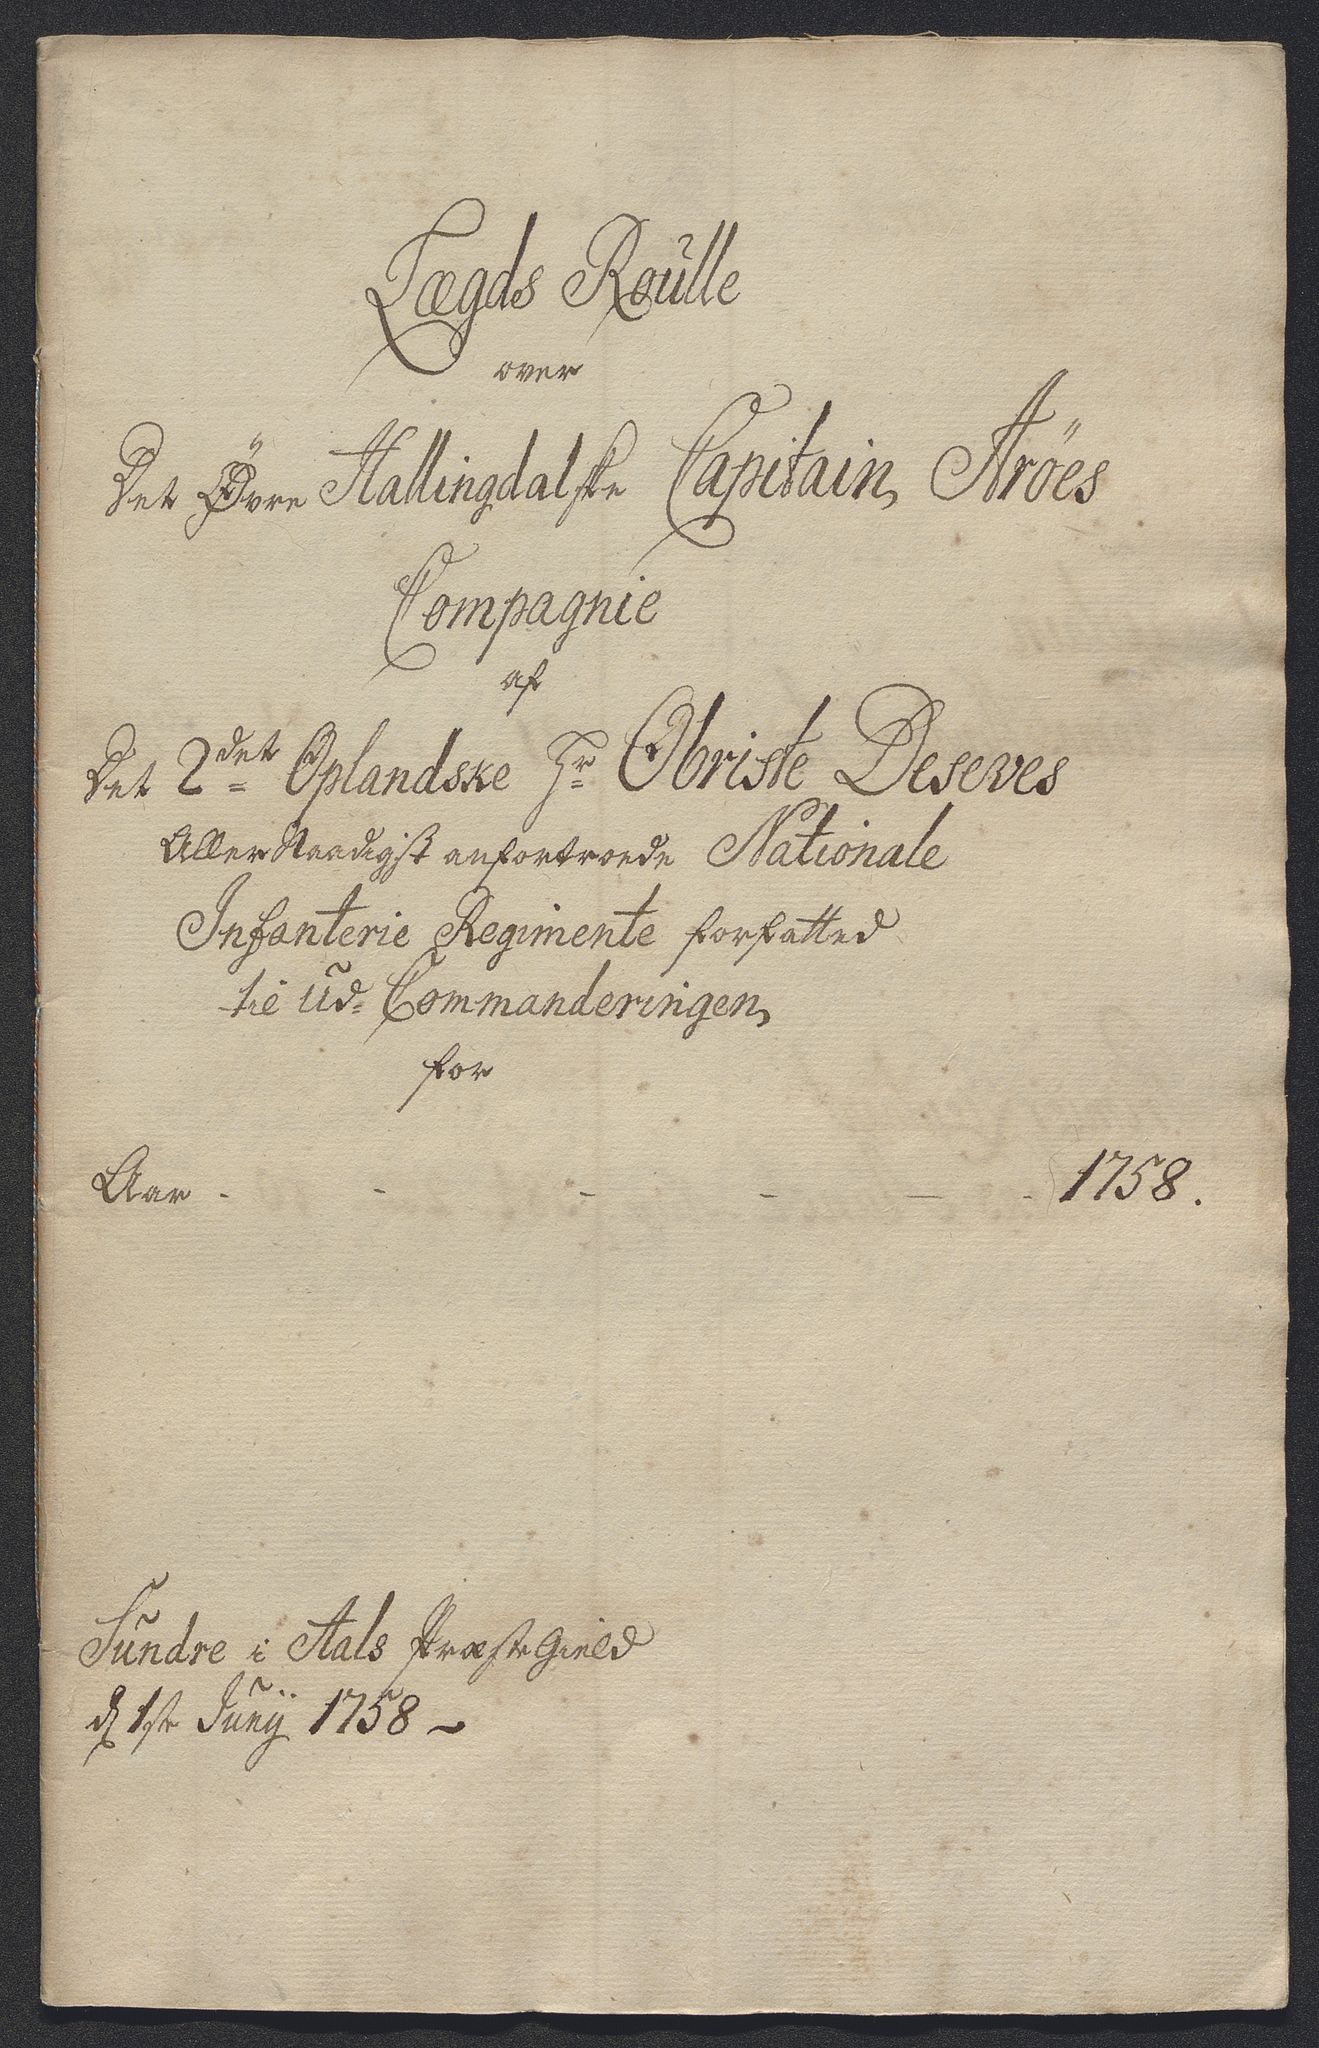 Lægds Roulle
over
Det Øvre Hallingdalske Capitain Aröes
Compagnie
af
Det 2det Oplandske Hr Obriste Deseves
Aller Naadigst anfortroede Nationale
Infanterie Regimente forfatted
til Ud= Commanderingen
for
Aar - - - - - - 1758.
Sundre i Aals Præste Gield
d 1ste Junij 1758 -